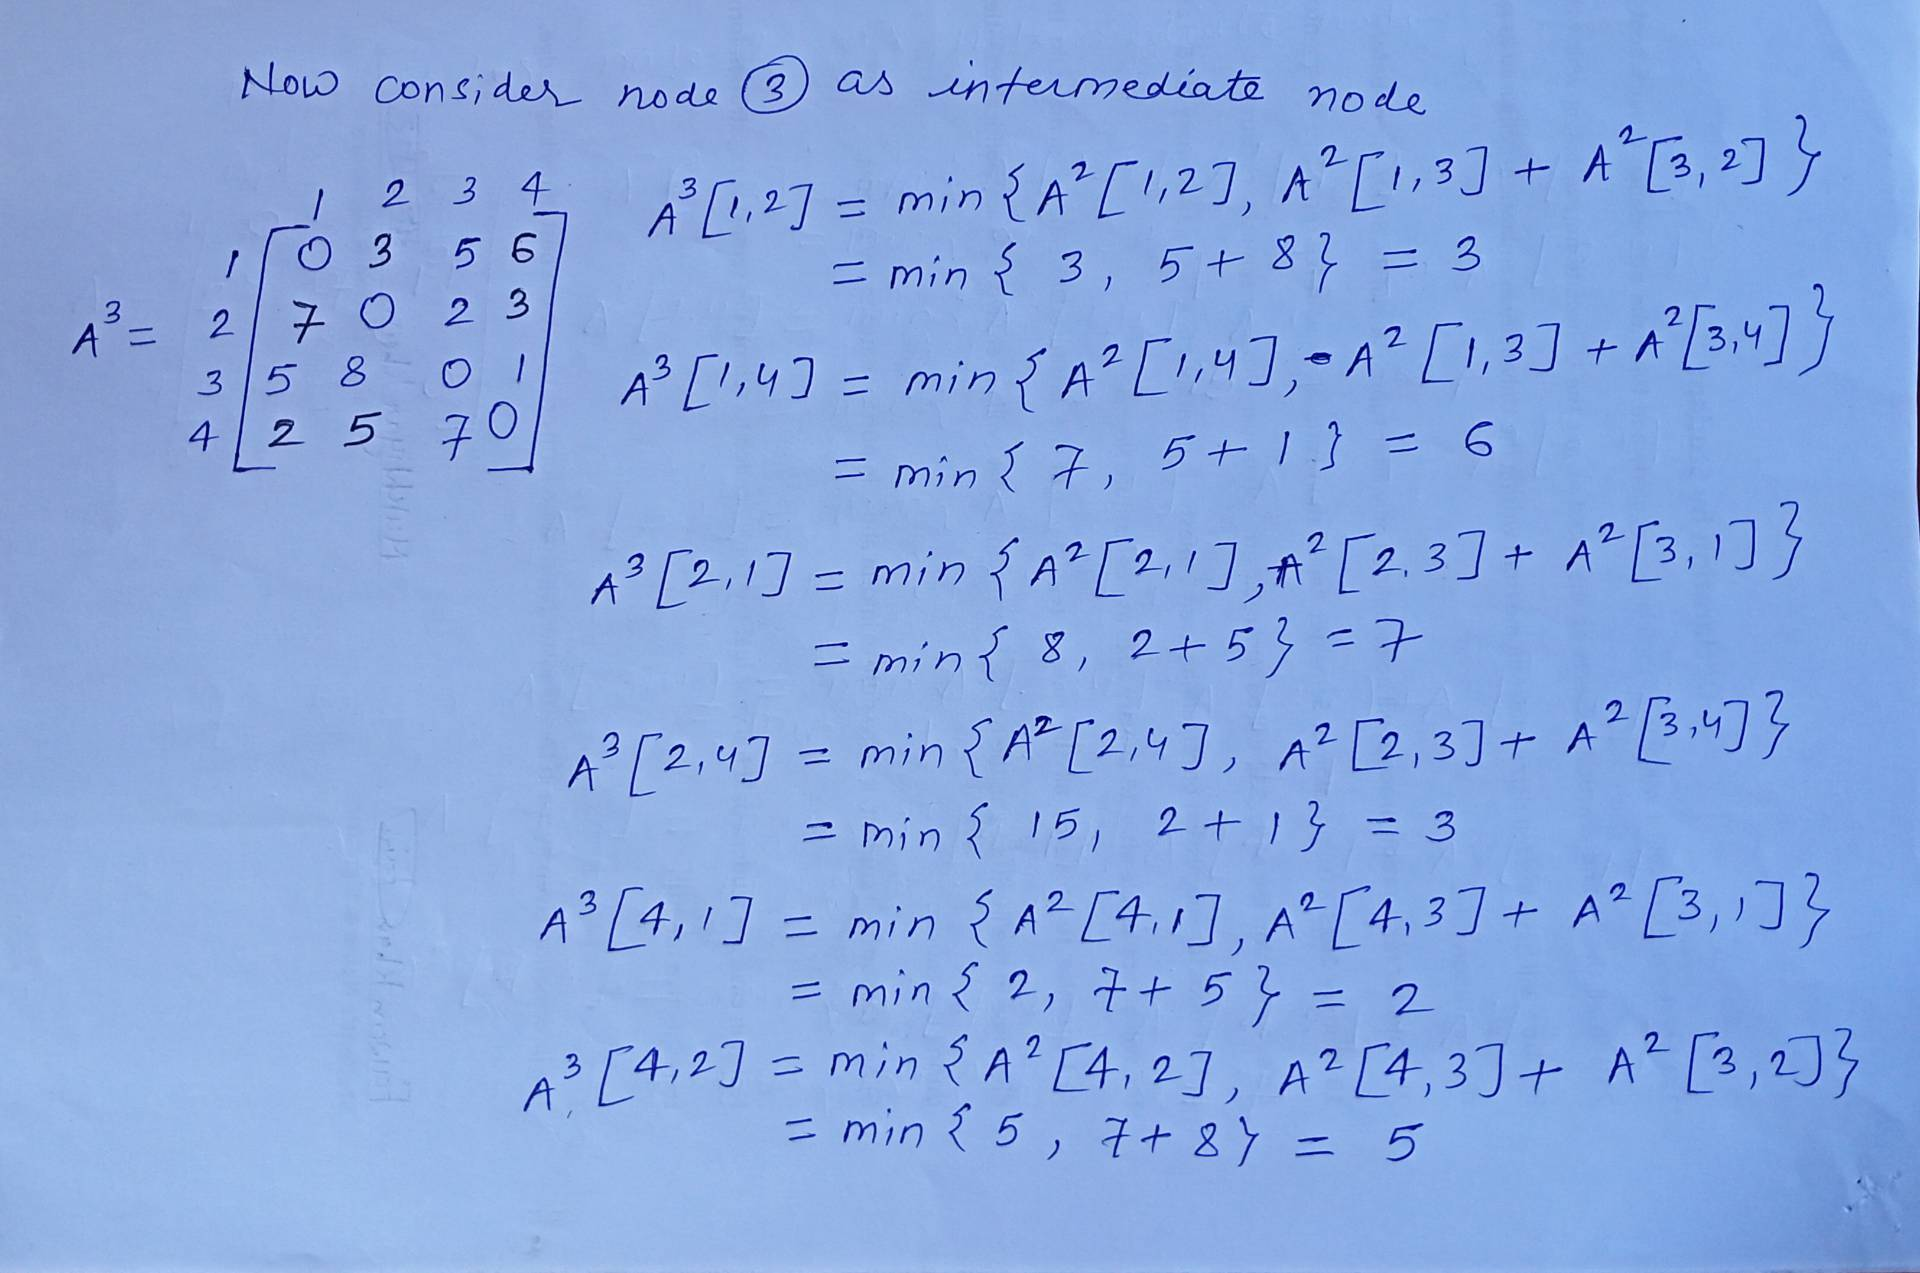 Now consider node ③ as intermediate node
1 2 3 4
1 0 3 5 6
A³ = 2 7 0 2 3
3 5 8 0 1
4 2 5 7 0
A³[1,2] = min {A²[1,2], A²[1,3] + A²[3,2]}
= min { 3, 5+8} = 3
A³[1,4] = min {A²[1,4], A²[1,3] + A²[3,4]}
= min {7, 5+1} = 6
A³[2,1] = min {A²[2,1], A²[2,3] + A²[3,1]}
= min{ 8, 2+5} = 7
A³[2,4] = min {A²[2,4], A²[2,3] + A²[3,4]}
= min { 15, 2+1} = 3
A³[4,1] = min {A²[4,1], A²[4,3] + A²[3,1]}
= min {2, 7+5} = 2
A³[4,2] = min {A²[4,2], A²[4,3] + A²[3,2]}
= min {5, 7+8} = 5